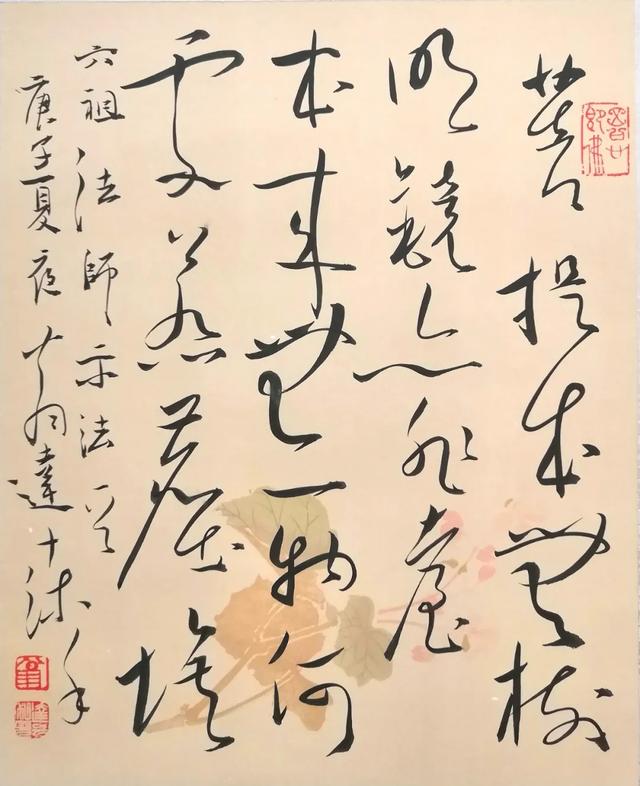 菩提本無樹
明鏡亦非臺
本來無一物何
處惹塵埃
六祖法師示法
庚子夏夜 達